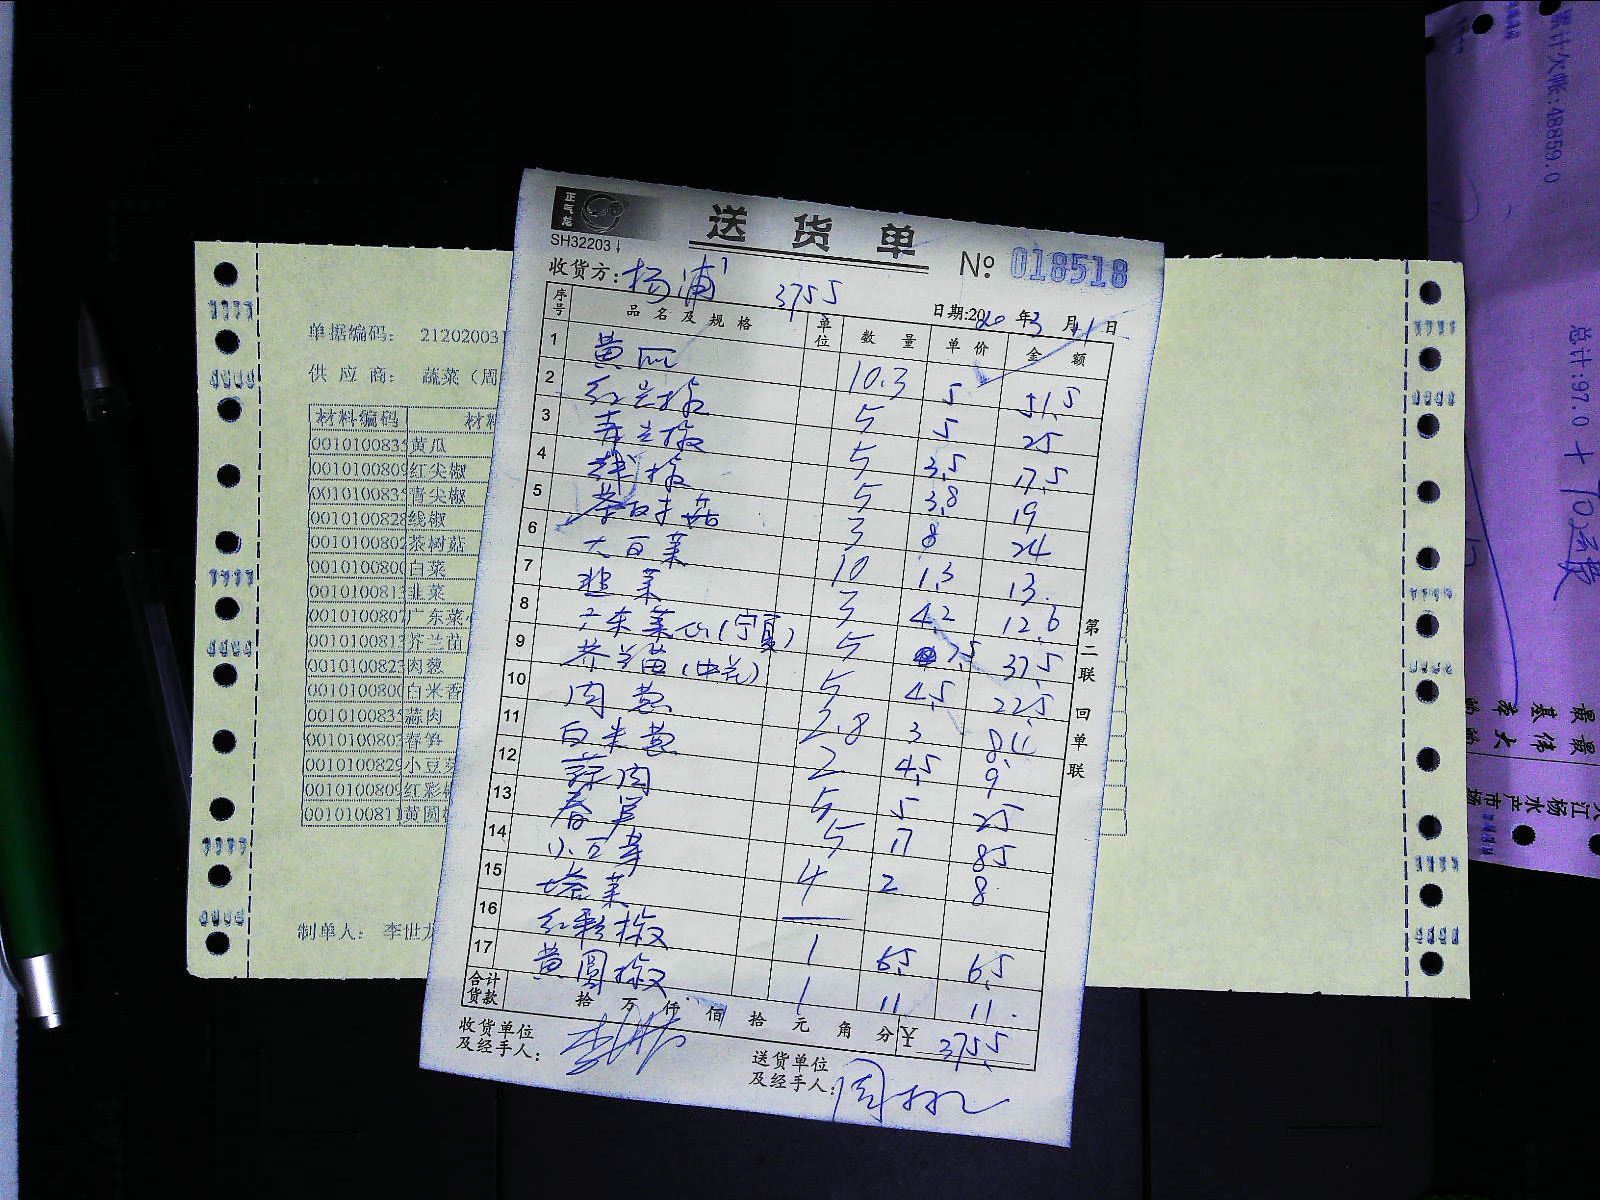 正气龙
SH32203
送货单
№ 018518
收货方: 杨浦 375.5
日期:2020年3月11日
序号 品名及规格 单位 数量 单价 金额
1 黄瓜 10.3 5 51.5
2 红尖椒 5 5 25
3 青尖椒 5 3.5 17.5
4 线椒 5 3.8 19
5 茶树菇 3 8 24
6 大白菜 10 1.3 13
7 韭菜 3 4.2 12.6
8 广东菜心(宁夏) 5 7.5 37.5
9 芥兰苗(中芥) 5 4.5 22.5
10 肉葱 2.8 3 8.4
11 白米葱 2 4.5 9
12 蒜肉 5 5 25
13 春笋 5 17 85
14 小豆芽 4 2 8
15 塔菜 —
16 红彩椒 1 6.5 6.5
17 黄圆椒 1 11 11.
合计货款 拾 万 仟 佰 拾 元 角 分 ¥ 375.5
收货单位及经手人:
送货单位及经手人: 周
第二联 回单联
单据编码: 212020031
供应商: 蔬菜(周
材料编码 材料
0010100835 黄瓜
0010100809 红尖椒
0010100835 青尖椒
0010100828 线椒
0010100802 茶树菇
0010100800 白菜
0010100813 韭菜
0010100807 广东菜
0010100813 芥兰苗
0010100823 肉葱
0010100800 白米香
0010100835 蒜肉
0010100803 春笋
0010100829 小豆芽
0010100809 红彩椒
0010100811 黄圆椒
制单人: 李世龙
累计欠账:48859.0
总计:97.0 +
江杨水产市场